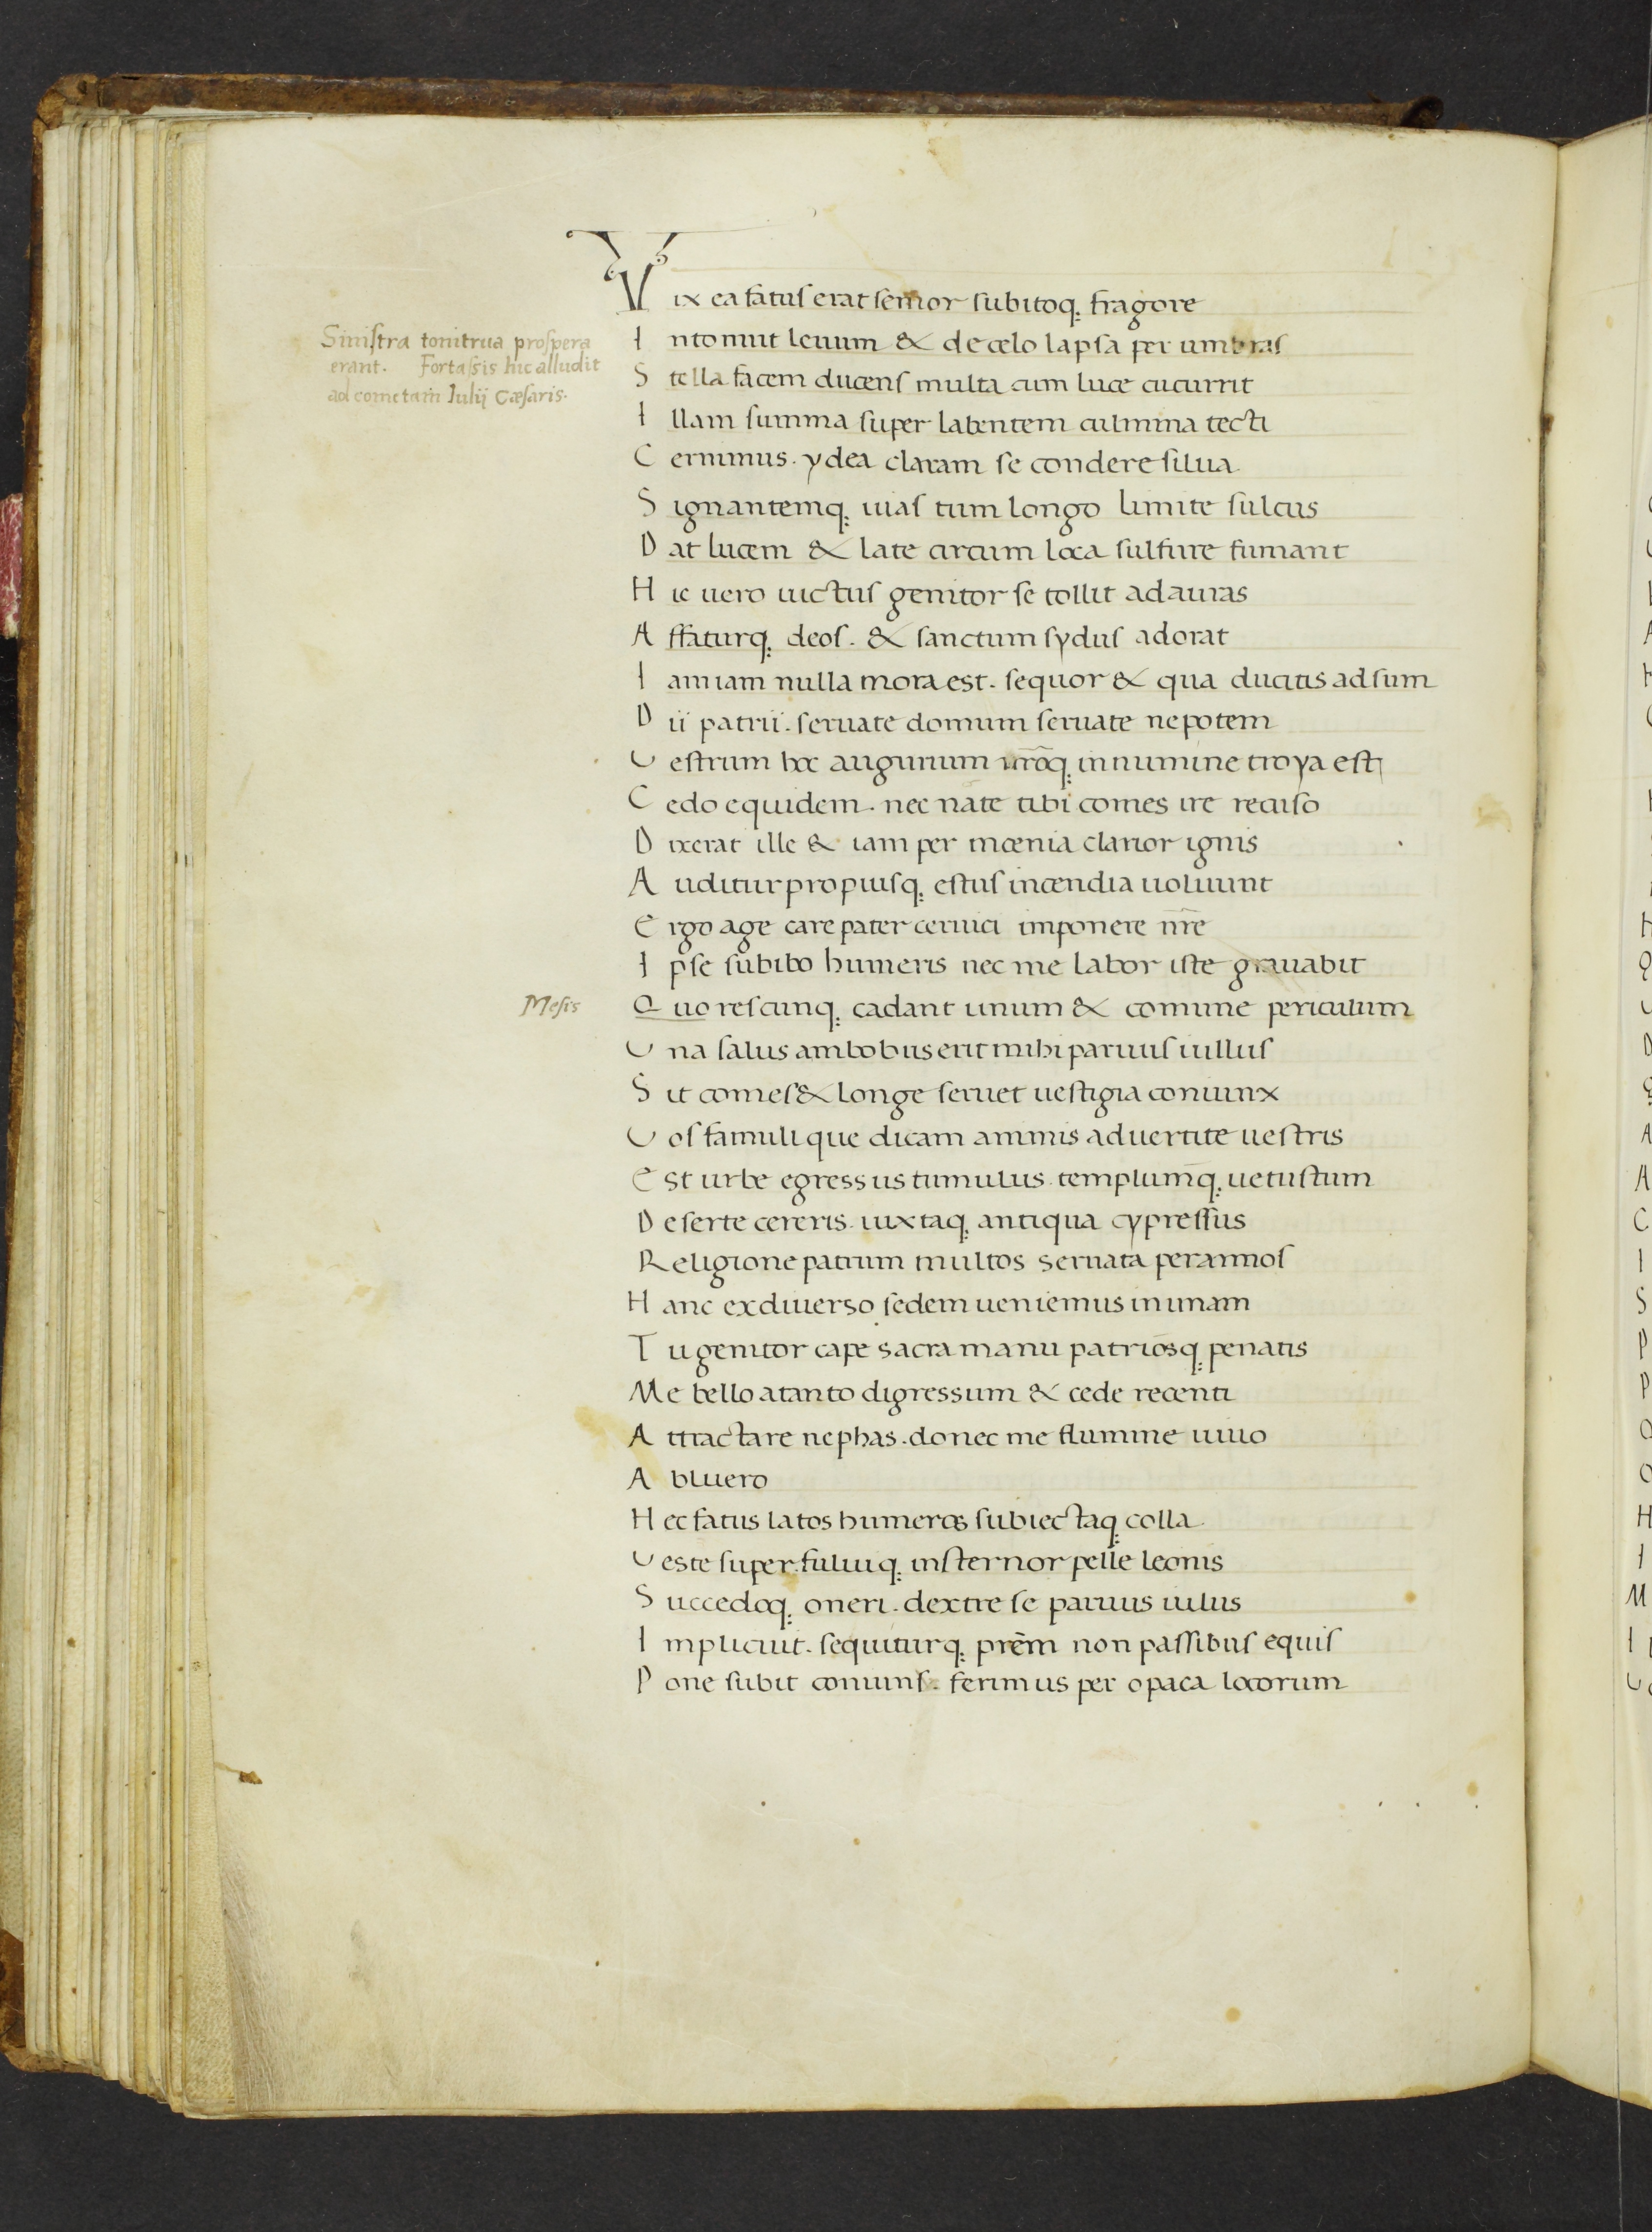 Vix ea fatus erat senior subitoq; fragore
Intonuit leuum & de celo lapsa per umbras
Stella facem ducens multa cum luce cucurrit
Illam summa super labentem culmina tecti
Cernimus. ydea claram se condere silua
Signantemq; uias tum longo limite sulcus
Dat lucem & late circum loca sulfure fumant
Hic uero uictus genitor se tollit ad auras
Affaturq; deos. & sanctum sydus adorat
Iam iam nulla mora est. sequor & qua ducitis adsum
Dii patrii. seruate domum seruate nepotem
Vestrum hoc augurium ur̄oq; in numine troya est
Cedo equidem. nec nate tibi comes ire recuso
Dixerat ille & iam per moenia clarior ignis
Auditur propiusq; estus incendia uoluunt
Ergo age care pater ceruici imponere nr̄e
Ipse subibo humeris nec me labor iste grauabit
Quo res cunq; cadant unum & comune periculum
Vna salus ambobus erit mihi paruus iullus
Sit comes & longe seruet uestigia coniunx
Vos famuli que dicam animis aduertite uestris
Est urbe egressus tumulus templumq; uetustum
Deserte cereris. iuxtaq; antiqua cypressus
Religione patrum multos seruata per annos
Hanc ex diuerso sedem ueniemus in unam
Tu genitor cape sacra manu patriosq; penatis
Me bello a tanto digressum & cede recenti
Attractare nephas. donec me flumine uiuo
Abluero
Hec fatus latos humeros subiectaq; colla
Veste super fuluiq; insternor pelle leonis
Succedoq; oneri. dextre se paruus iulus
Implicuit. sequiturq; prēm non passibus equis
Pone subit coniuns. ferimus per opaca locorum
Sinistra tonitrua prospera
erant. Fortassis hic alludit
ad cometam Iulij Cæsaris.
Mesis